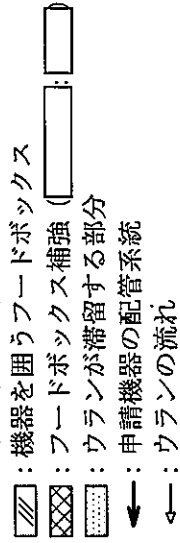 ：機器を囲うフードボックス
：フードボックス補強（　：　）
：ウランが滞留する部分
：申請機器の配管系統
：ウランの流れ